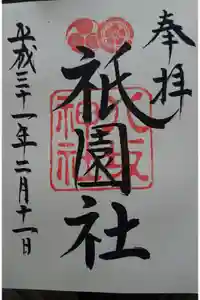 奉拝
祇園社
八坂神社
平成三十一年二月十一日